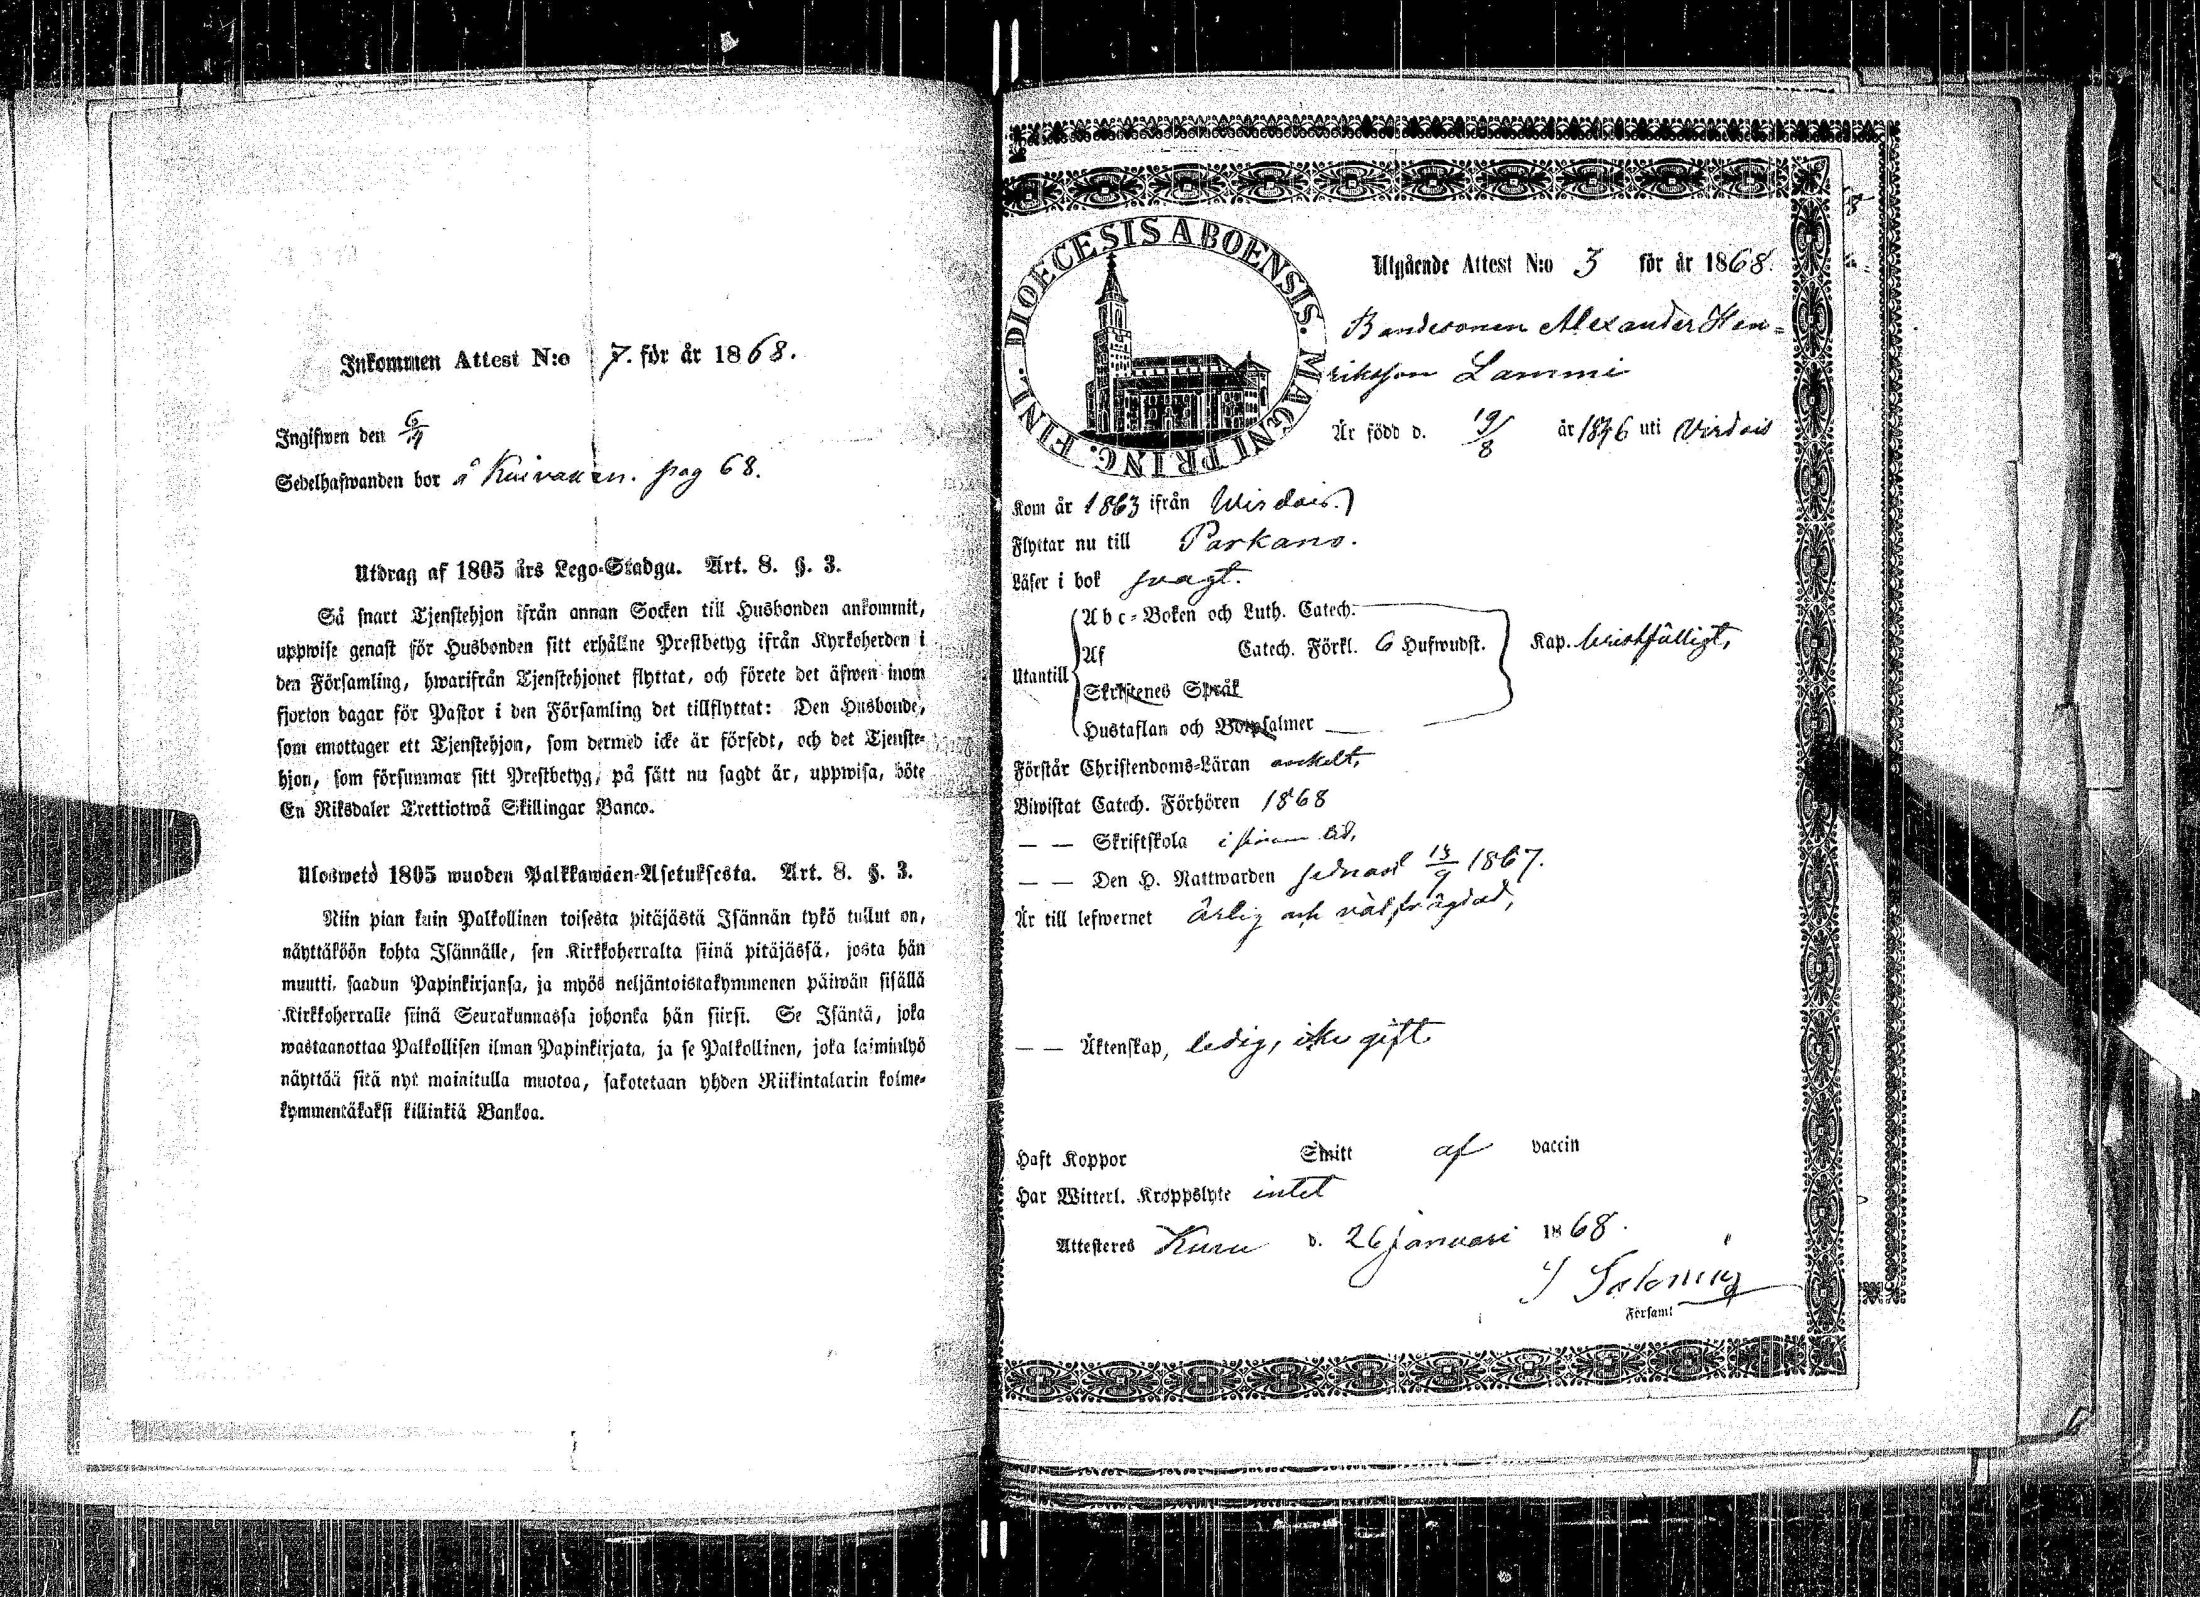 Inkommen Attest N:o 7. för år 1868.
Ingifwen den 6/4
Sedelhafwanden bor å Kuivanen. pag 68.
Utdrag af 1805 års Lego-Stadga. Art. 8. §. 3.
Så snart Tjenstehjon ifrån annan Socken till Husbonden ankommit,
uppwise genast för Husbonden sitt erhållne Prestbetyg ifrån Kyrkoherden i
den Församling, hwarifrån Tjenstehjonet flyttat, och förete det äfwen inom
fjorton dagar för Pastor i den Församling det tillflyttat: Den Husbonde,
som emottager ett Tjenstehjon, som dermed icke är försedt, och det Tjenste-
hjon, som försummar sitt Prestbetyg, på sätt nu sagdt är, uppwisa, böte
En Riksdaler Trettiotwå Skillingar Banco.
Uloswetö 1805 wuoden Palkkawäen-Asetuksesta. Art. 8. §. 3.
Niin pian kuin Palkollinen toisesta pitäjästä Isännän tykö tullut on,
näyttäköön kohta Isännälle, sen Kirkkoherralta siinä pitäjässä, josta hän
muutti, saadun Papinkirjansa, ja myös neljäntoistakymmenen päiwän sisällä
Kirkkoherralle siinä Seurakunnassa johonka hän siirsi. Se Isäntä, joka
wastaanottaa Palkollisen ilman Papinkirjata, ja se Palkollinen, joka laiminlyö
näyttää sitä nyt mainitulla muotoa, sakotetaan yhden Riikintalarin kolme-
kymmentäkaksi killinkiä Bankoa.
DIOECESIS ABOENSIS. MAGNI PRINC. FINL.
Utgående Attest N:o 3 för år 1868.
Bondesonen Alexander Hen=
riksson Lammi
Är född d. 19/8 år 1846 uti Virdois
Kom år 1863 ifrån Wirdois.
Flyttar nu till Parkano.
Läser i bok svagt.
Utantill
Abc-Boken och Luth. Catech.
Af Catech. Förkl. 6 Hufwudst. Kap. bristfälligt,
Skriftenes Språk
Hustaflan och Botpsalmer
Förstår Christendoms-Läran enkelt,
Biwistat Catech. Förhören 1868
— — Skriftskola i sinom tid,
— — Den H. Nattwarden sednast 15/9 1867.
Är till lefwernet ärlig och välfrägdad,
— — Äktenskap, ledig, icke gift.
Haft Koppor Smitt af vaccin
Har Witterl. Kroppslyte intet
Attesteres Kuru d. 26 Januari 1868.
Salonius
Församl